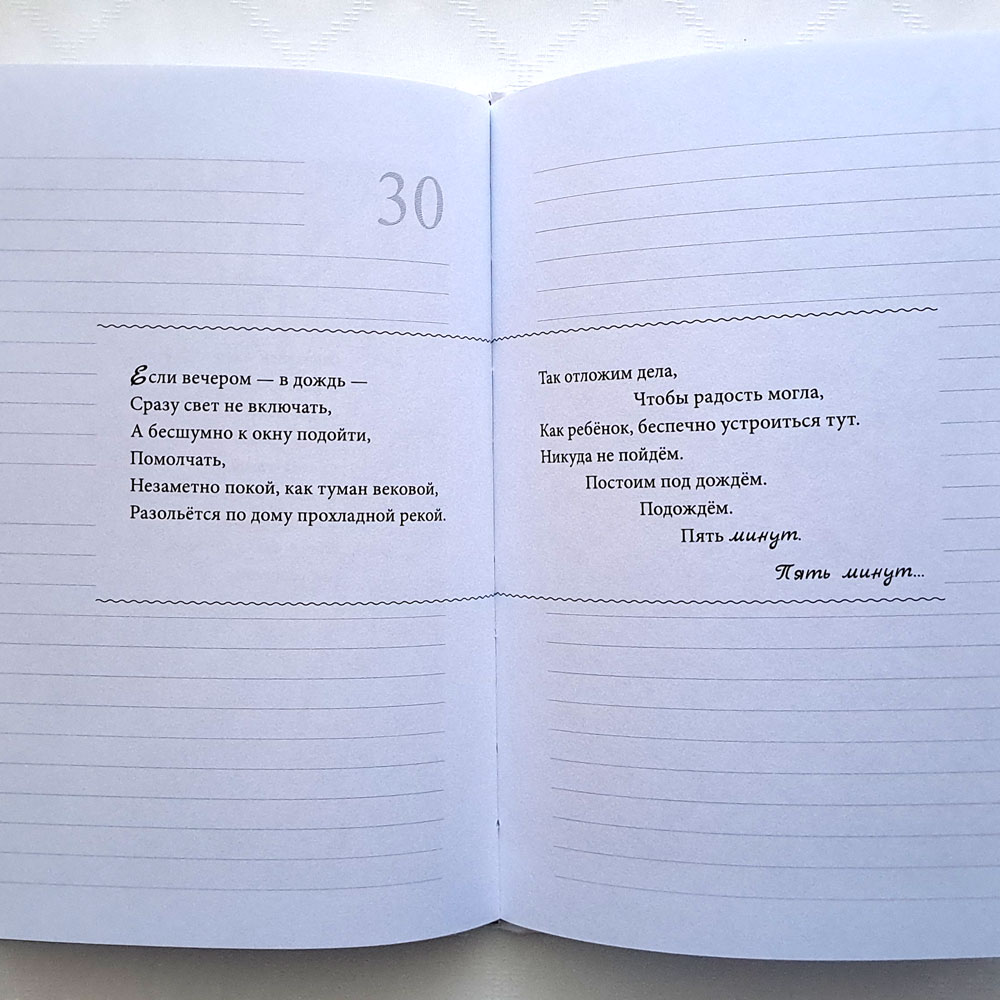 30
Если вечером — в дождь —
Сразу свет не включать,
А бесшумно к окну подойти,
Помолчать,
Незаметно покой, как туман вековой,
Разольётся по дому прохладной рекой.
Так отложим дела,
Чтобы радость могла,
Как ребёнок, беспечно устроиться тут.
Никуда не пойдём.
Постоим под дождём.
Подождём.
Пять минут.
Пять минут...